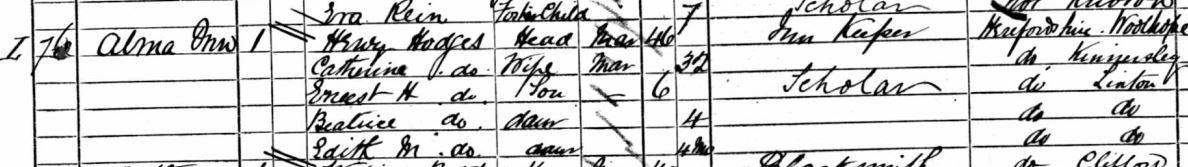 Eva Rein Foster Child 7 Scholar Not Known
I 76 Alma Inn 1 Henry Hodges Head Mar 46 Inn Keeper Herefordshire Woolhope
Catherine do. Wife Mar 32 do Kinnersley
Ernest H do. Son 6 Scholar do Linton
Beatrice do. daur 4 do do
Edith M. do. daur 4 Mo do do
Blacksmith do Clifford